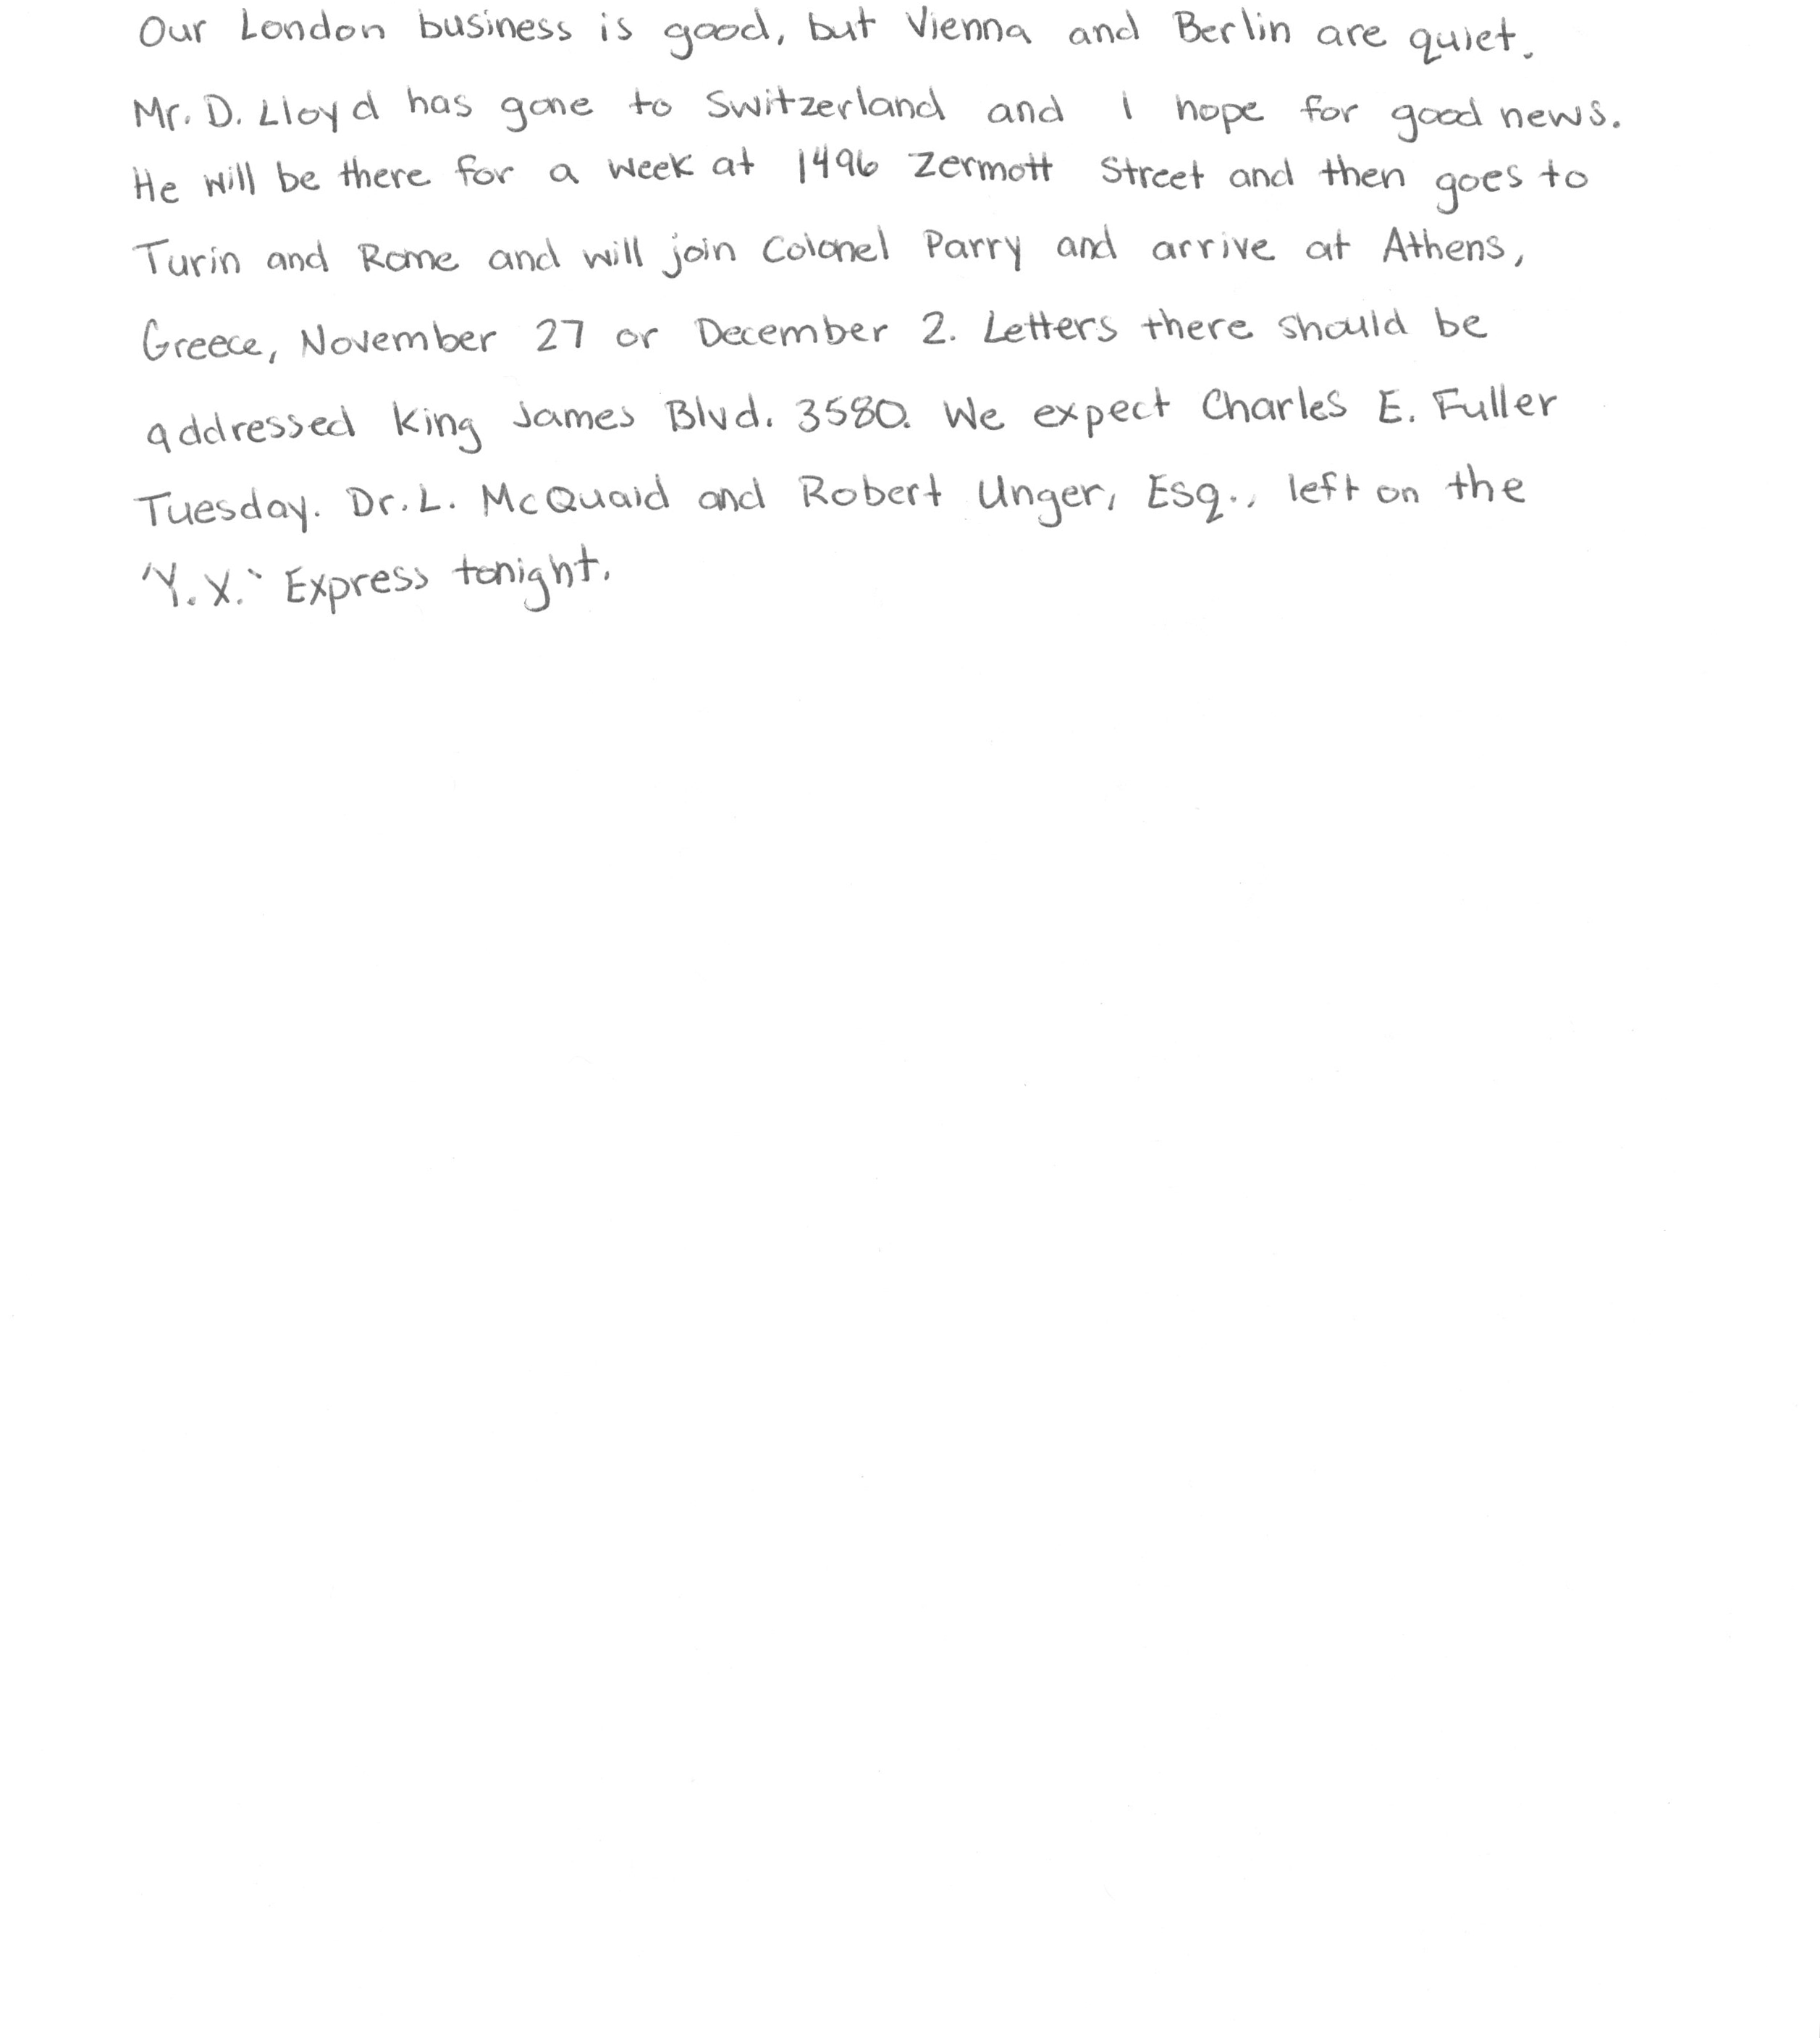 Our London business is good, but Vienna and Berlin are quiet.
Mr. D. Lloyd has gone to Switzerland and I hope for good news.
He will be there for a week at 1496 Zermott Street and then goes to
Turin and Rome and will join Colonel Parry and arrive at Athens,
Greece, November 27 or December 2. Letters there should be
addressed King James Blvd. 3580. We expect Charles E. Fuller
Tuesday. Dr. L. McQuaid and Robert Unger, Esq., left on the
"Y.X." Express tonight.